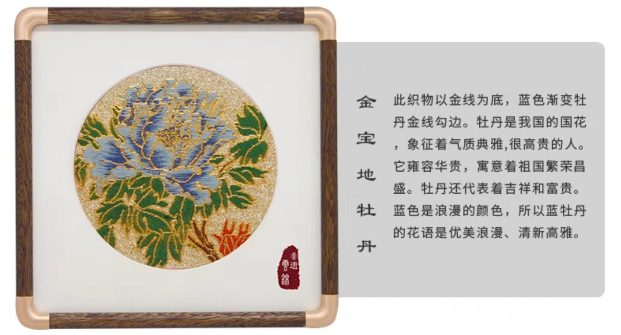 金宝地牡丹
此织物以金线为底，蓝色渐变牡
丹金线勾边。牡丹是我国的国花
，象征着气质典雅,很高贵的人。
它雍容华贵，寓意着祖国繁荣昌
盛。牡丹还代表着吉祥和富贵。
蓝色是浪漫的颜色，所以蓝牡丹
的花语是优美浪漫、清新高雅。